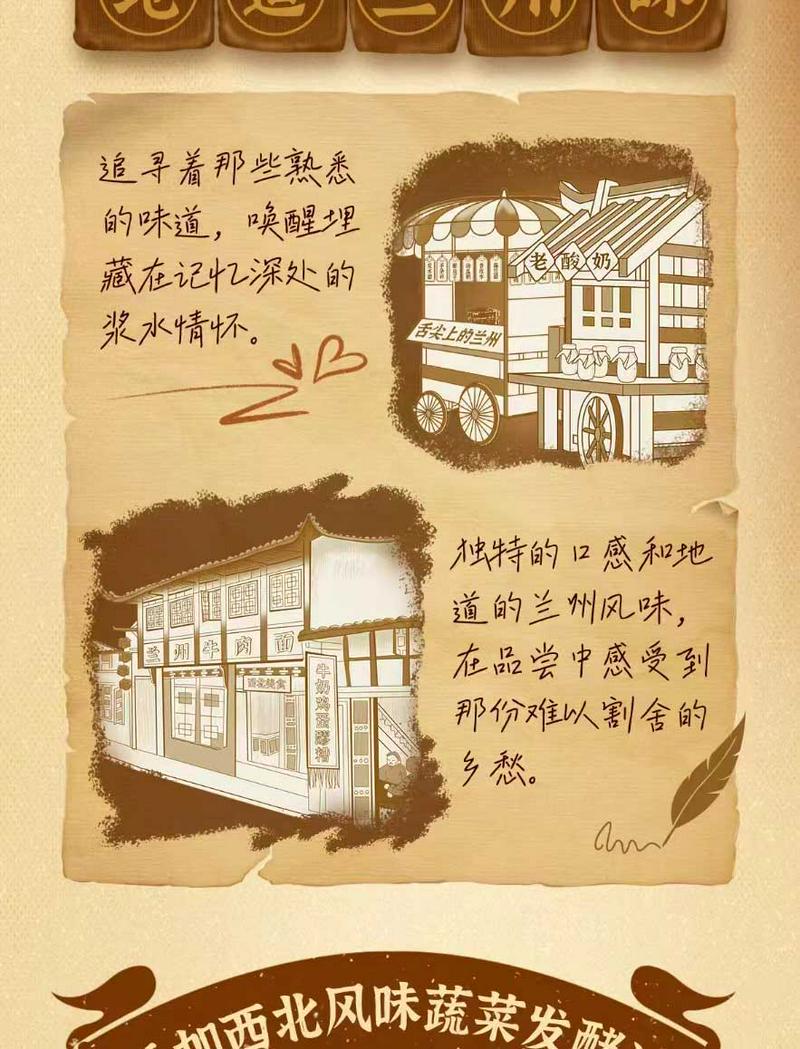 追寻着那些熟悉
的味道，唤醒埋
藏在记忆深处的
浆水情怀。
老酸奶
舌尖上的兰州
兰州牛肉面
西北美食
牛奶鸡蛋醪糟
独特的口感和地
道的兰州风味，
在品尝中感受到
那份难以割舍的
乡愁。
加西北风味蔬菜发酵